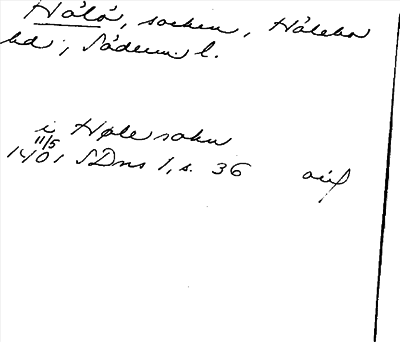 Hålå, socken, Hölebo
hd, Söderm. l.
i Høle sokn
11/5
1401 SDns 1, s. 36